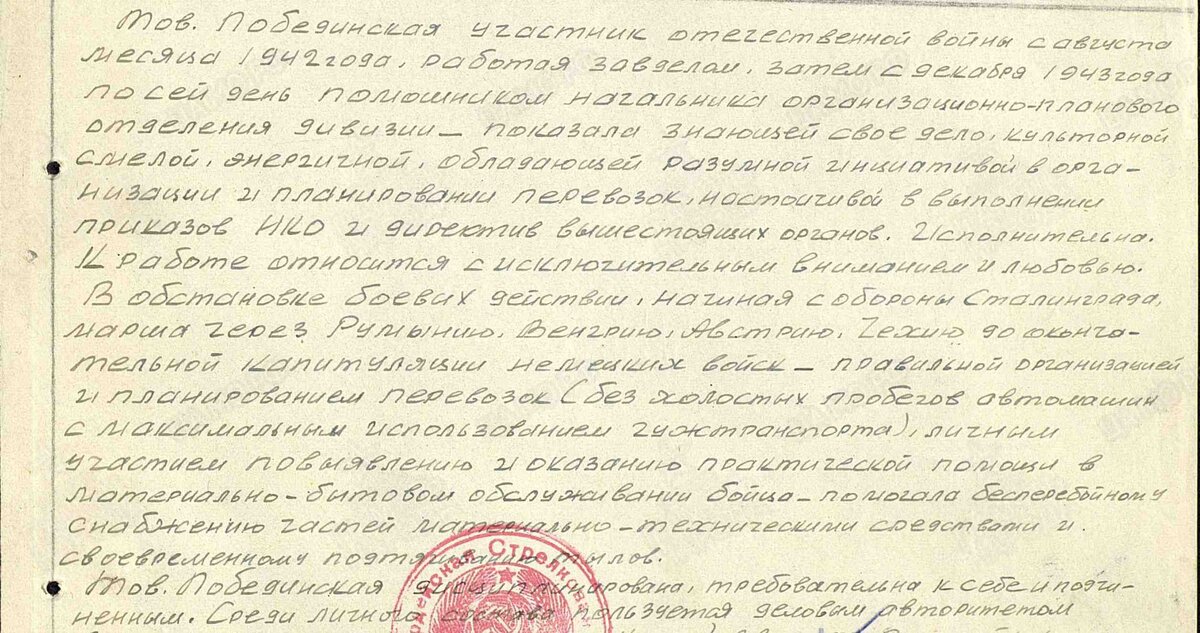 Тов. Побединская участник отечественной войны с августа
месяца 1942 года, работая завделом, затем с декабря 1943 года
по сей день помошником начальника организационно-планового
отделения дивизии – показала знающей свое дело, культорной
смелой, энергичной, обладающей разумной инициативой в орга-
низации и планировании перевозок, настойчивой в выполнении
приказов НКО и директив вышестоящих органов. Исполнительна.
К работе относится с исключительным вниманием и любовью.
В обстановке боевих действии, начиная с обороны Сталинграда,
марша через Румынию, Венгрию, Австрию, Чехию до оконча-
тельной капитуляции немецких войск – правильной организацией
и планированием перевозок (без холостых пробегов автомашин
с максимальным использованием гужтранспорта), личным
участием по выявлению и оказанию практической помощи в
материально-бытовом обслуживании бойца – помогала бесперебойному
снабжению частей материально-техническими средствами и
своевременному подтягиванию тылов.
Тов. Побединская дисциплинирована, требовательна к себе и подчи-
ненным. Среди личного состава пользуется деловым авторитетом
Стрелковая